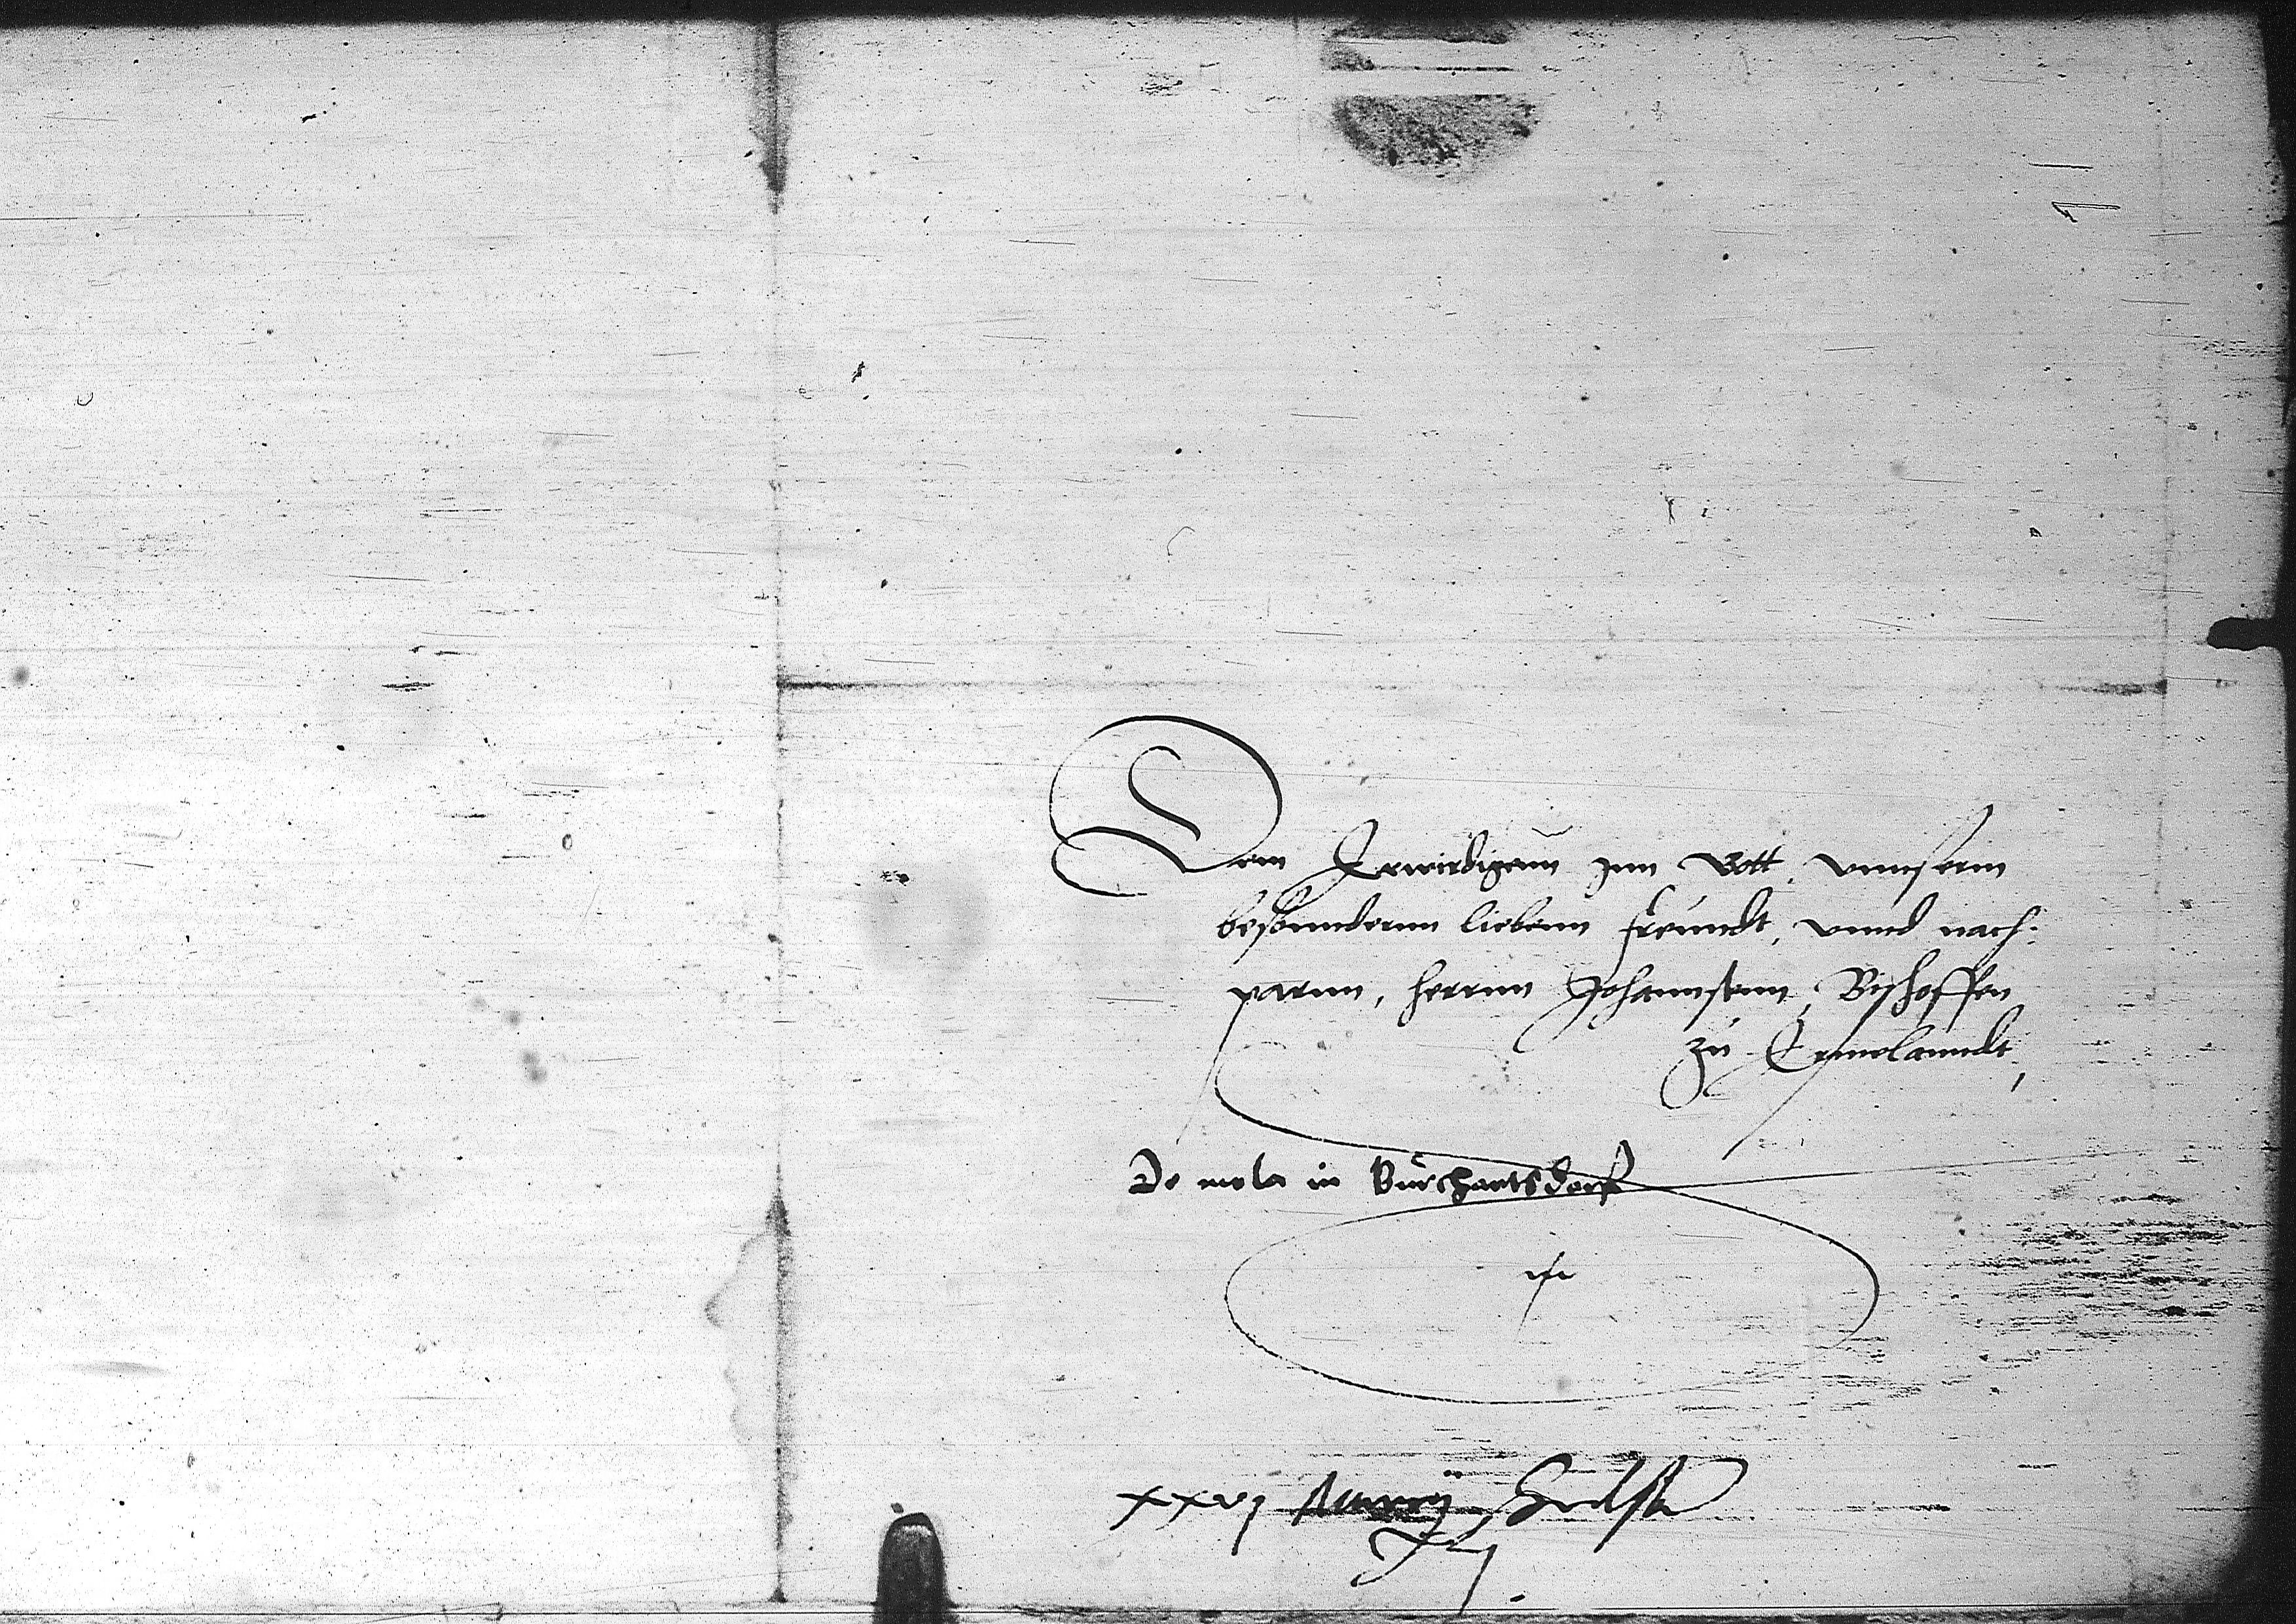 Dem Erwirdigenn jnn Gott, vnnserm
besonndernn liebenn freundt, vnnd nach:
parnn, herrnn Johannsenn, Bischoffen
zu Ermelanndt,
De mola in Burchartsdorff
xxvj